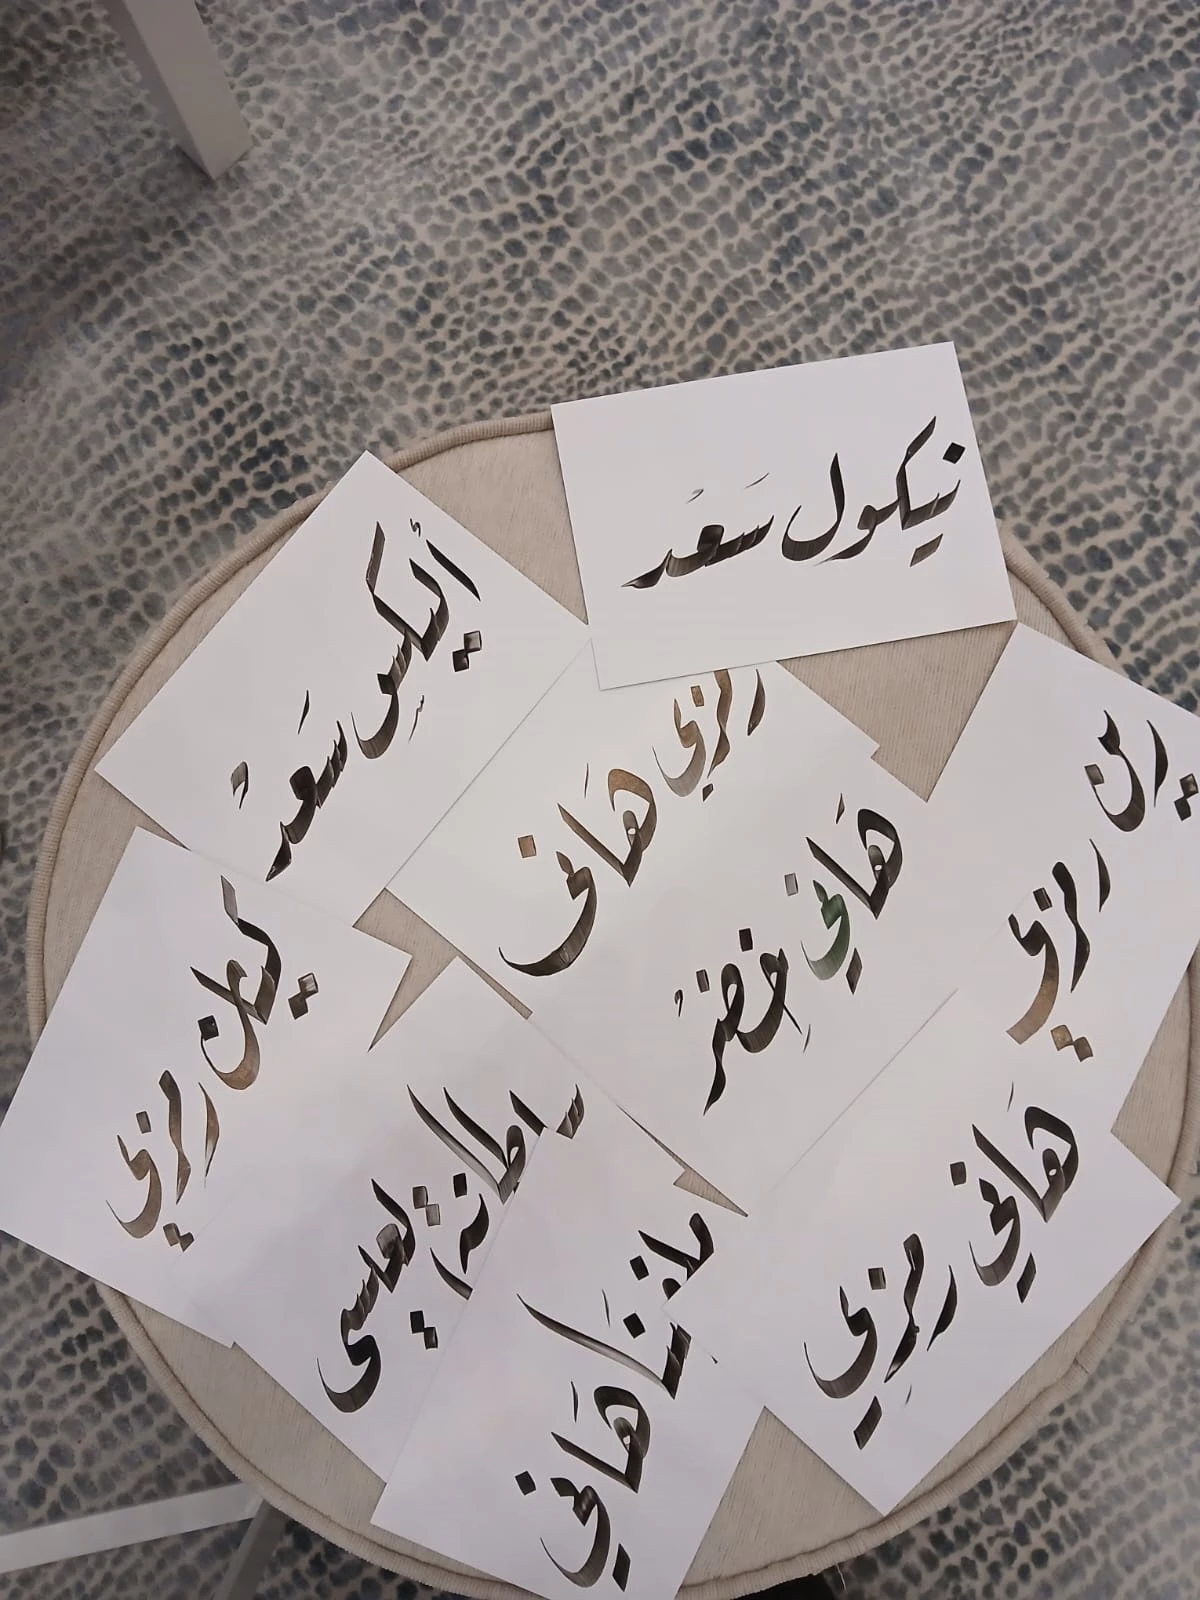 نيكول سَعد
أليكس سَعد
رمزي هَاني
هَاني خِضر
رين رمزي
كريم رمزي
سلطانة العاسي
هَاني
هَاني رمزي